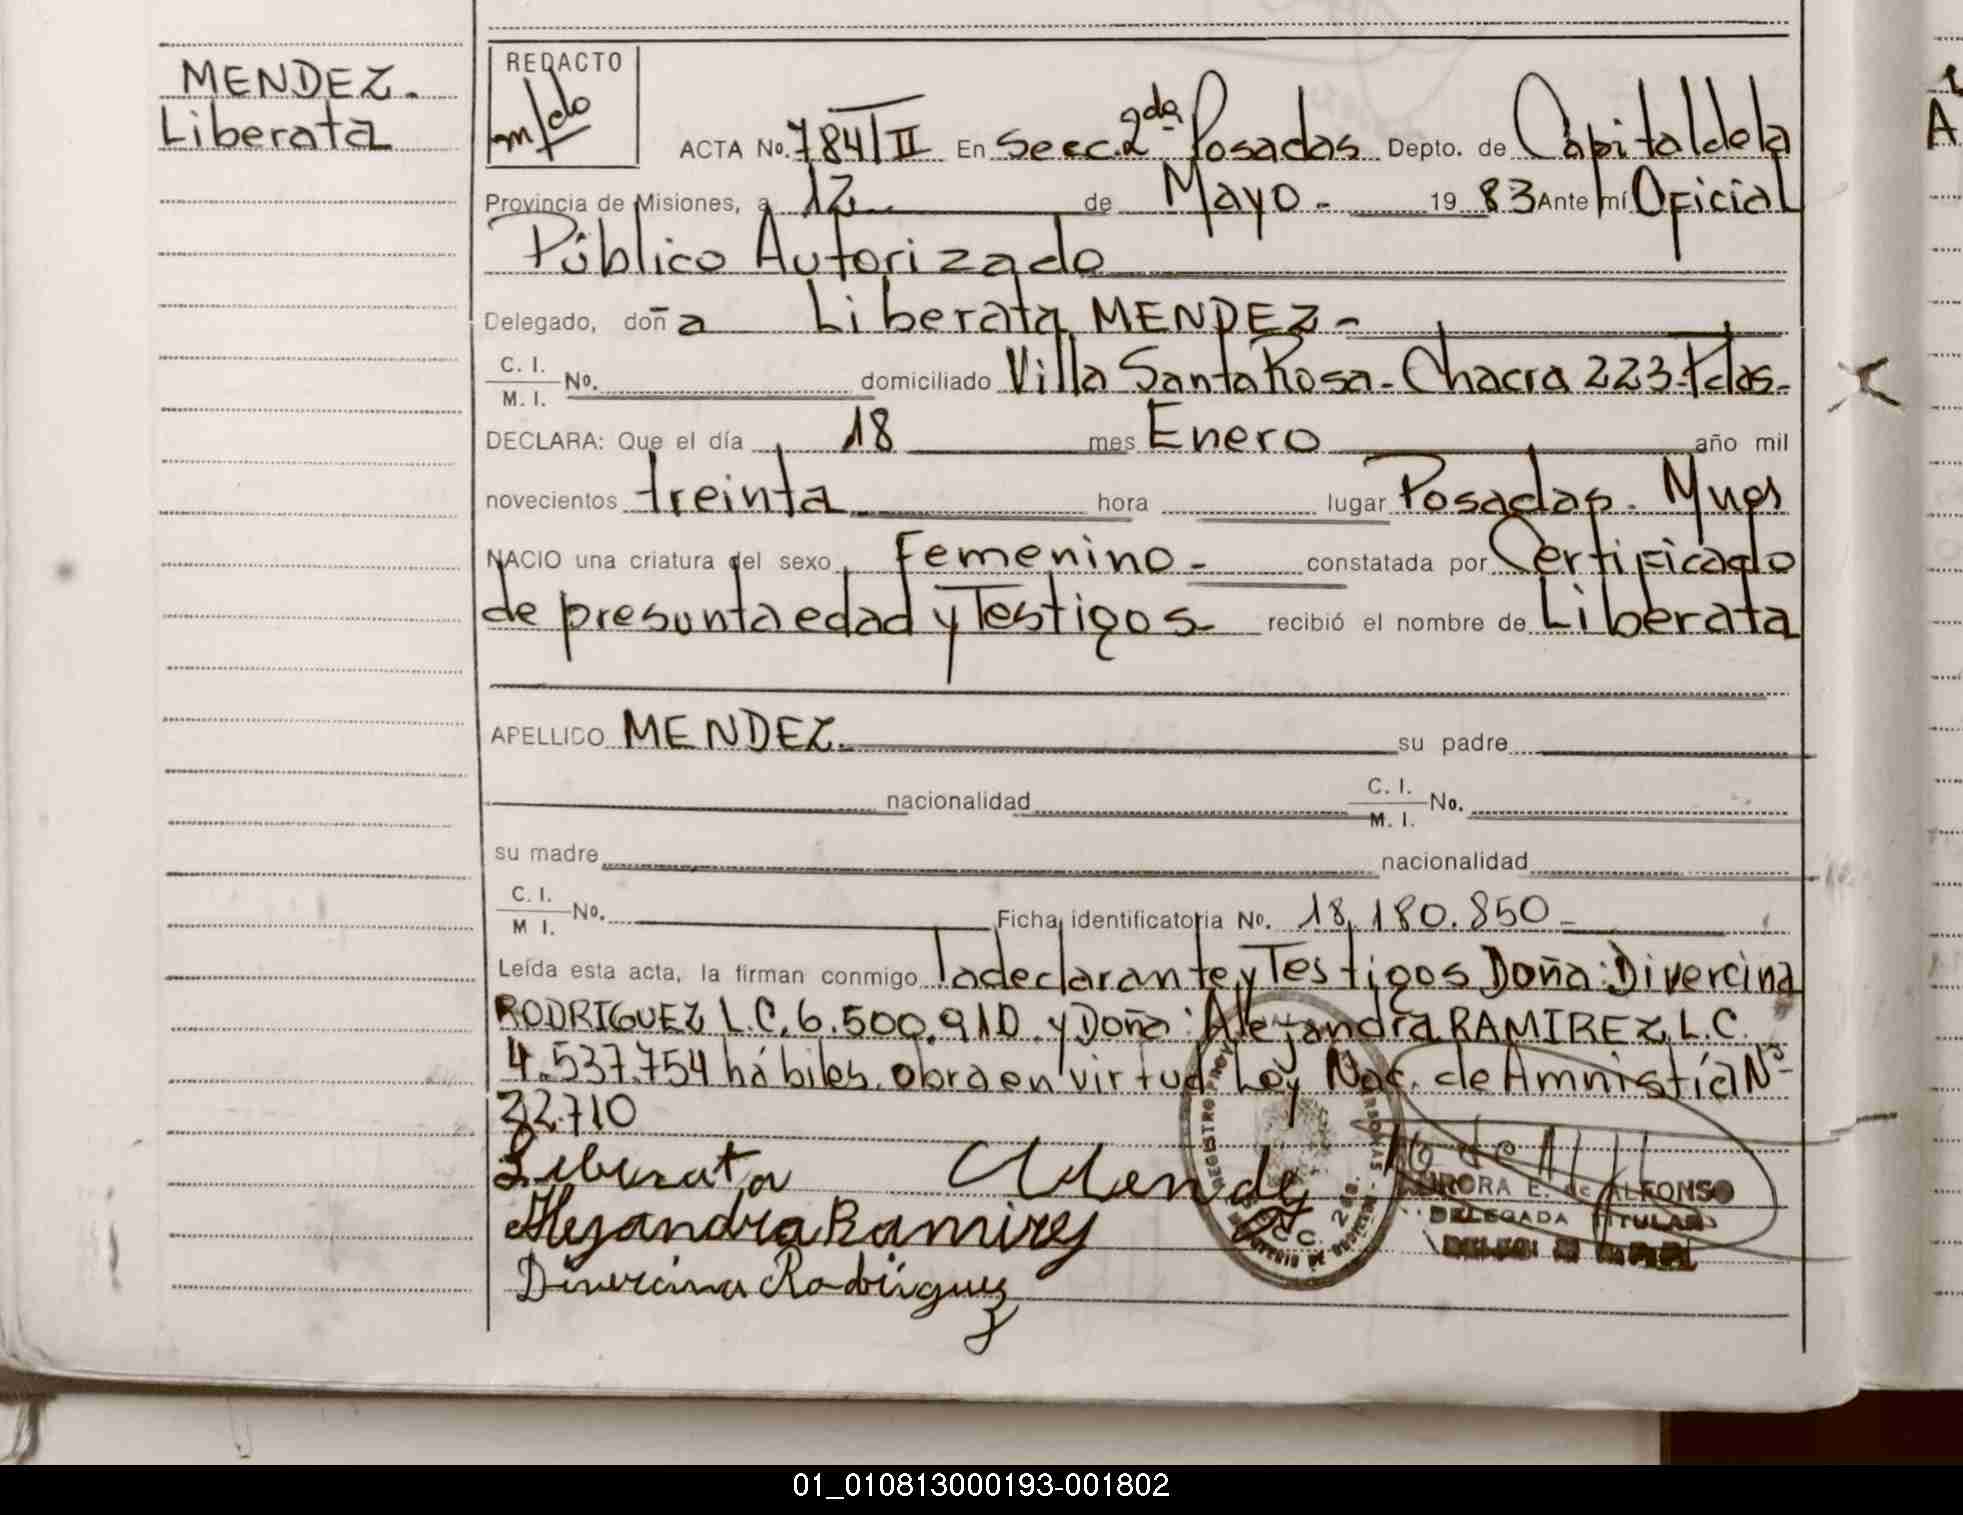 MENDEZ.
Liberata
REDACTO
ACTA No. 784/II En Secc. 2da Posadas Depto. de Capital de la
Provincia de Misiones, a 12 de Mayo - 19 83 Ante mí Oficial
Público Autorizado
Delegado, doña Liberata MENDEZ -
C. I.
M. I. No. domiciliado Villa Santa Rosa - Chacra 223 - Pdas -
DECLARA: Que el día 18 mes Enero año mil
novecientos treinta hora lugar Posadas. Mnes
NACIO una criatura del sexo Femenino - constatada por Certificado
de presunta edad y Testigos - recibió el nombre de Liberata
APELLIDO MENDEZ. su padre
nacionalidad C. I.
M. I. No.
su madre nacionalidad
C. I.
M I. No. Ficha identificatoria No. 18.180.850 -
Leída esta acta, la firman conmigo la declarante y Testigos Doña: Divercina
RODRIGUEZ L.C. 6.500.910 y Doña: Alejandra RAMIREZ, L.C.
4.537.754 hábiles. obra en virtud Ley Nac. de Amnistía Nº
22.710
Liberata Mendez
Alejandra Ramires
Divercina Rodriguez
REGISTRO PROV. DE LAS PERSONAS
SECC. 2da.
AURORA E. de ALFONSO
DELEGADA TITULAR
01_010813000193-001802